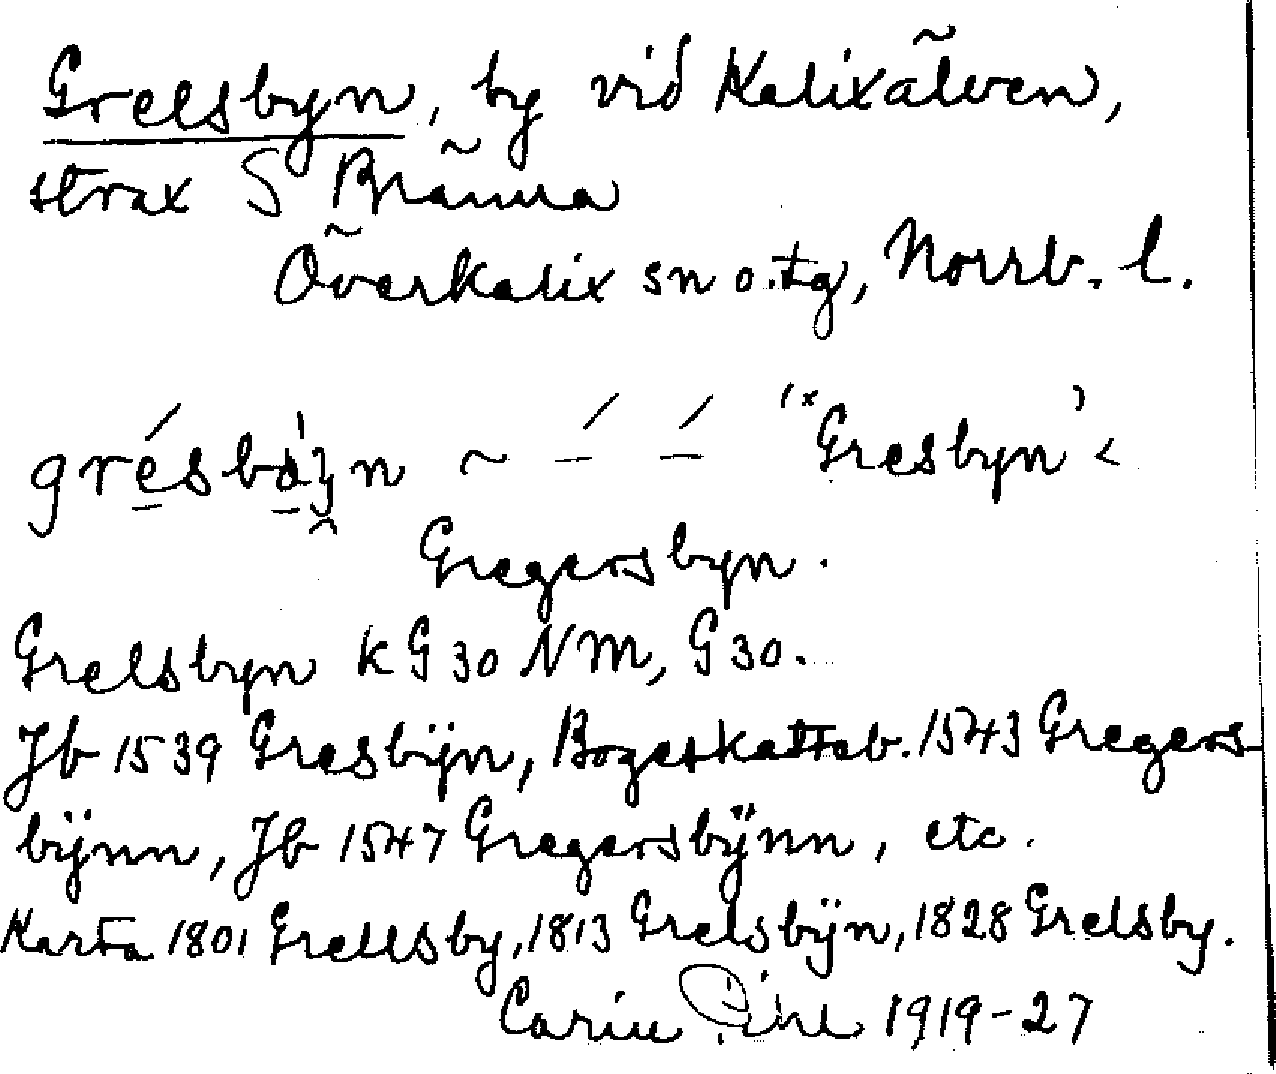 Grelsbyn, by vid Kalixälven,
strax S Bränna
Överkalix sn o. tg, Norrb. l.
grésbàyn ~ – ́ – ́ '*Gresbyn' <
Gregersbyn.
Grelsbyn kG30NM, G30.
Jb 1539 Gresbÿn, Bogeskatteb. 1543 Gregers-
bÿnn, Jb 1547 Gregersbÿnn, etc.
Karta 1801 Grellsby, 1813 Grelsbÿn, 1828 Grelsby.
Carin Pihl 1919-27